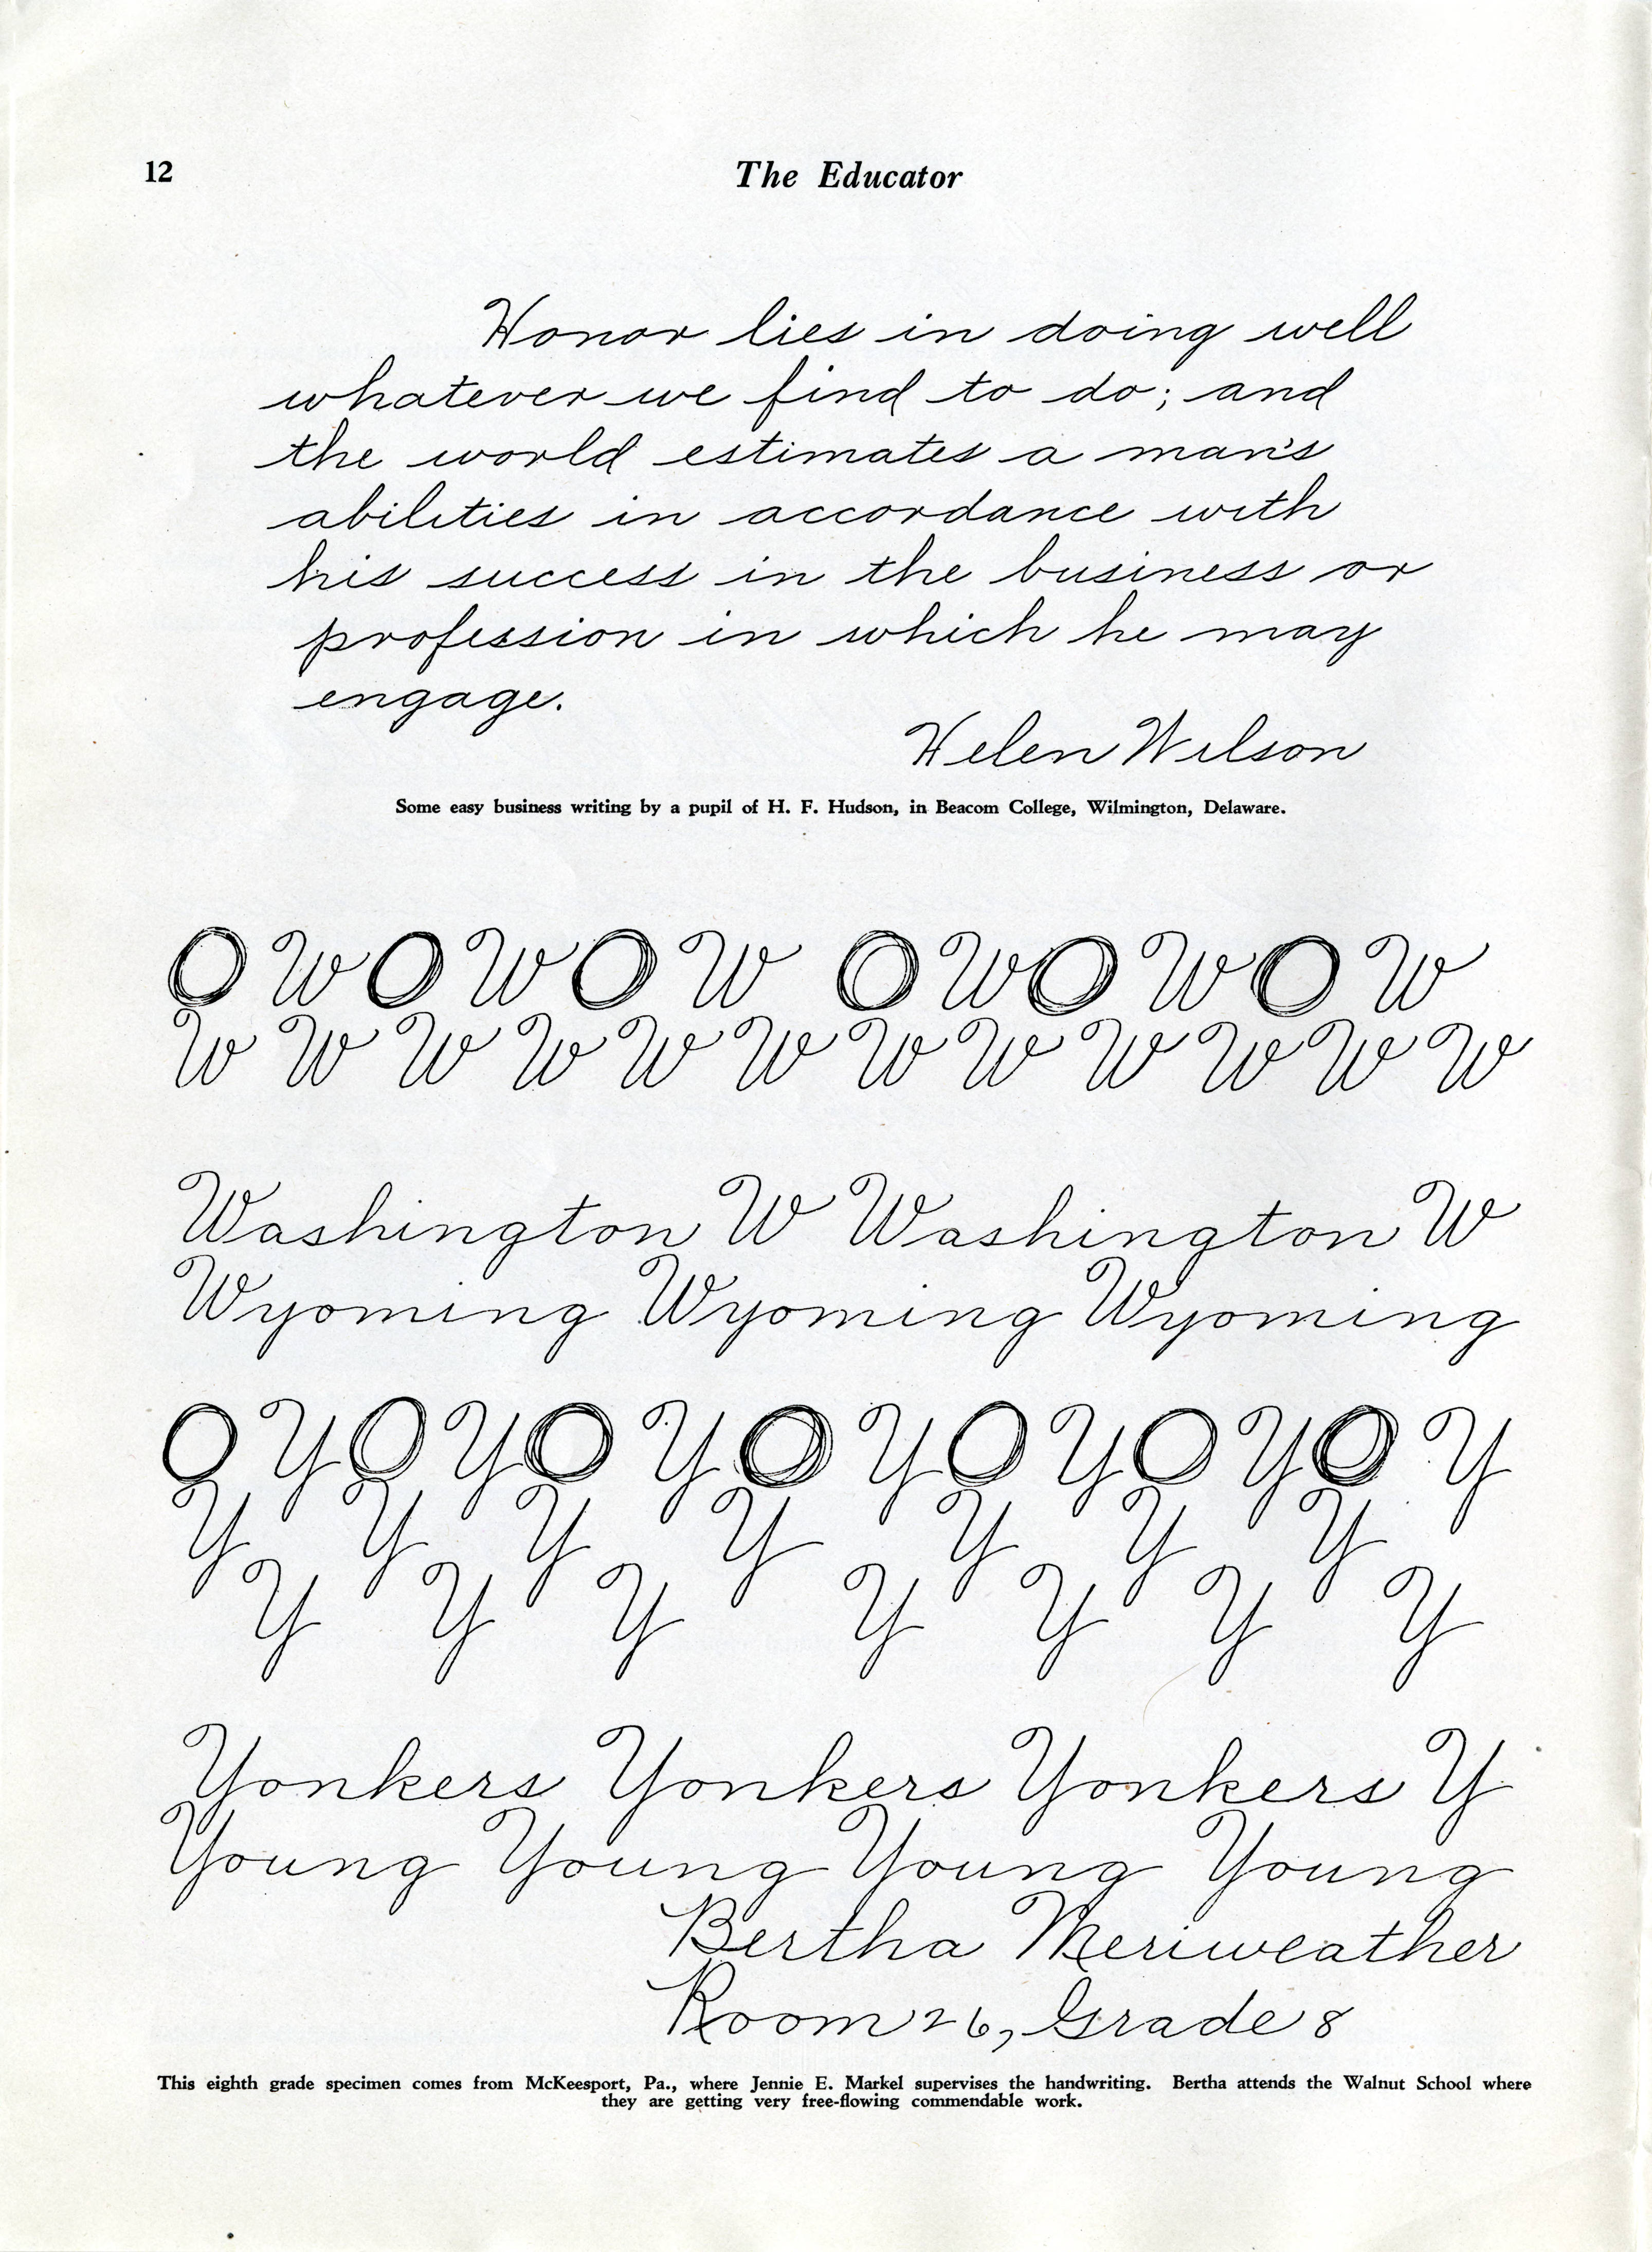 12
The Educator
Honor lies in doing well
whatever we find to do; and
the world estimates a man's
abilities in accordance with
his success in the business or
profession in which he may
engage.
Helen Wilson
Some easy business writing by a pupil of H. F. Hudson, in Beacom College, Wilmington, Delaware.
O W O W O W O W O W O W
W W W W W W W W W W W W
Washington W Washington W
Wyoming Wyoming Wyoming
O Y O Y O Y O Y O Y O Y O Y
Y Y Y Y Y Y Y
Y Y Y Y Y Y Y
Yonkers Yonkers Yonkers Y
Young Young Young Young
Bertha Meriweather
Room 26, Grade 8
This eighth grade specimen comes from McKeesport, Pa., where Jennie E. Markel supervises the handwriting. Bertha attends the Walnut School where
they are getting very free-flowing commendable work.